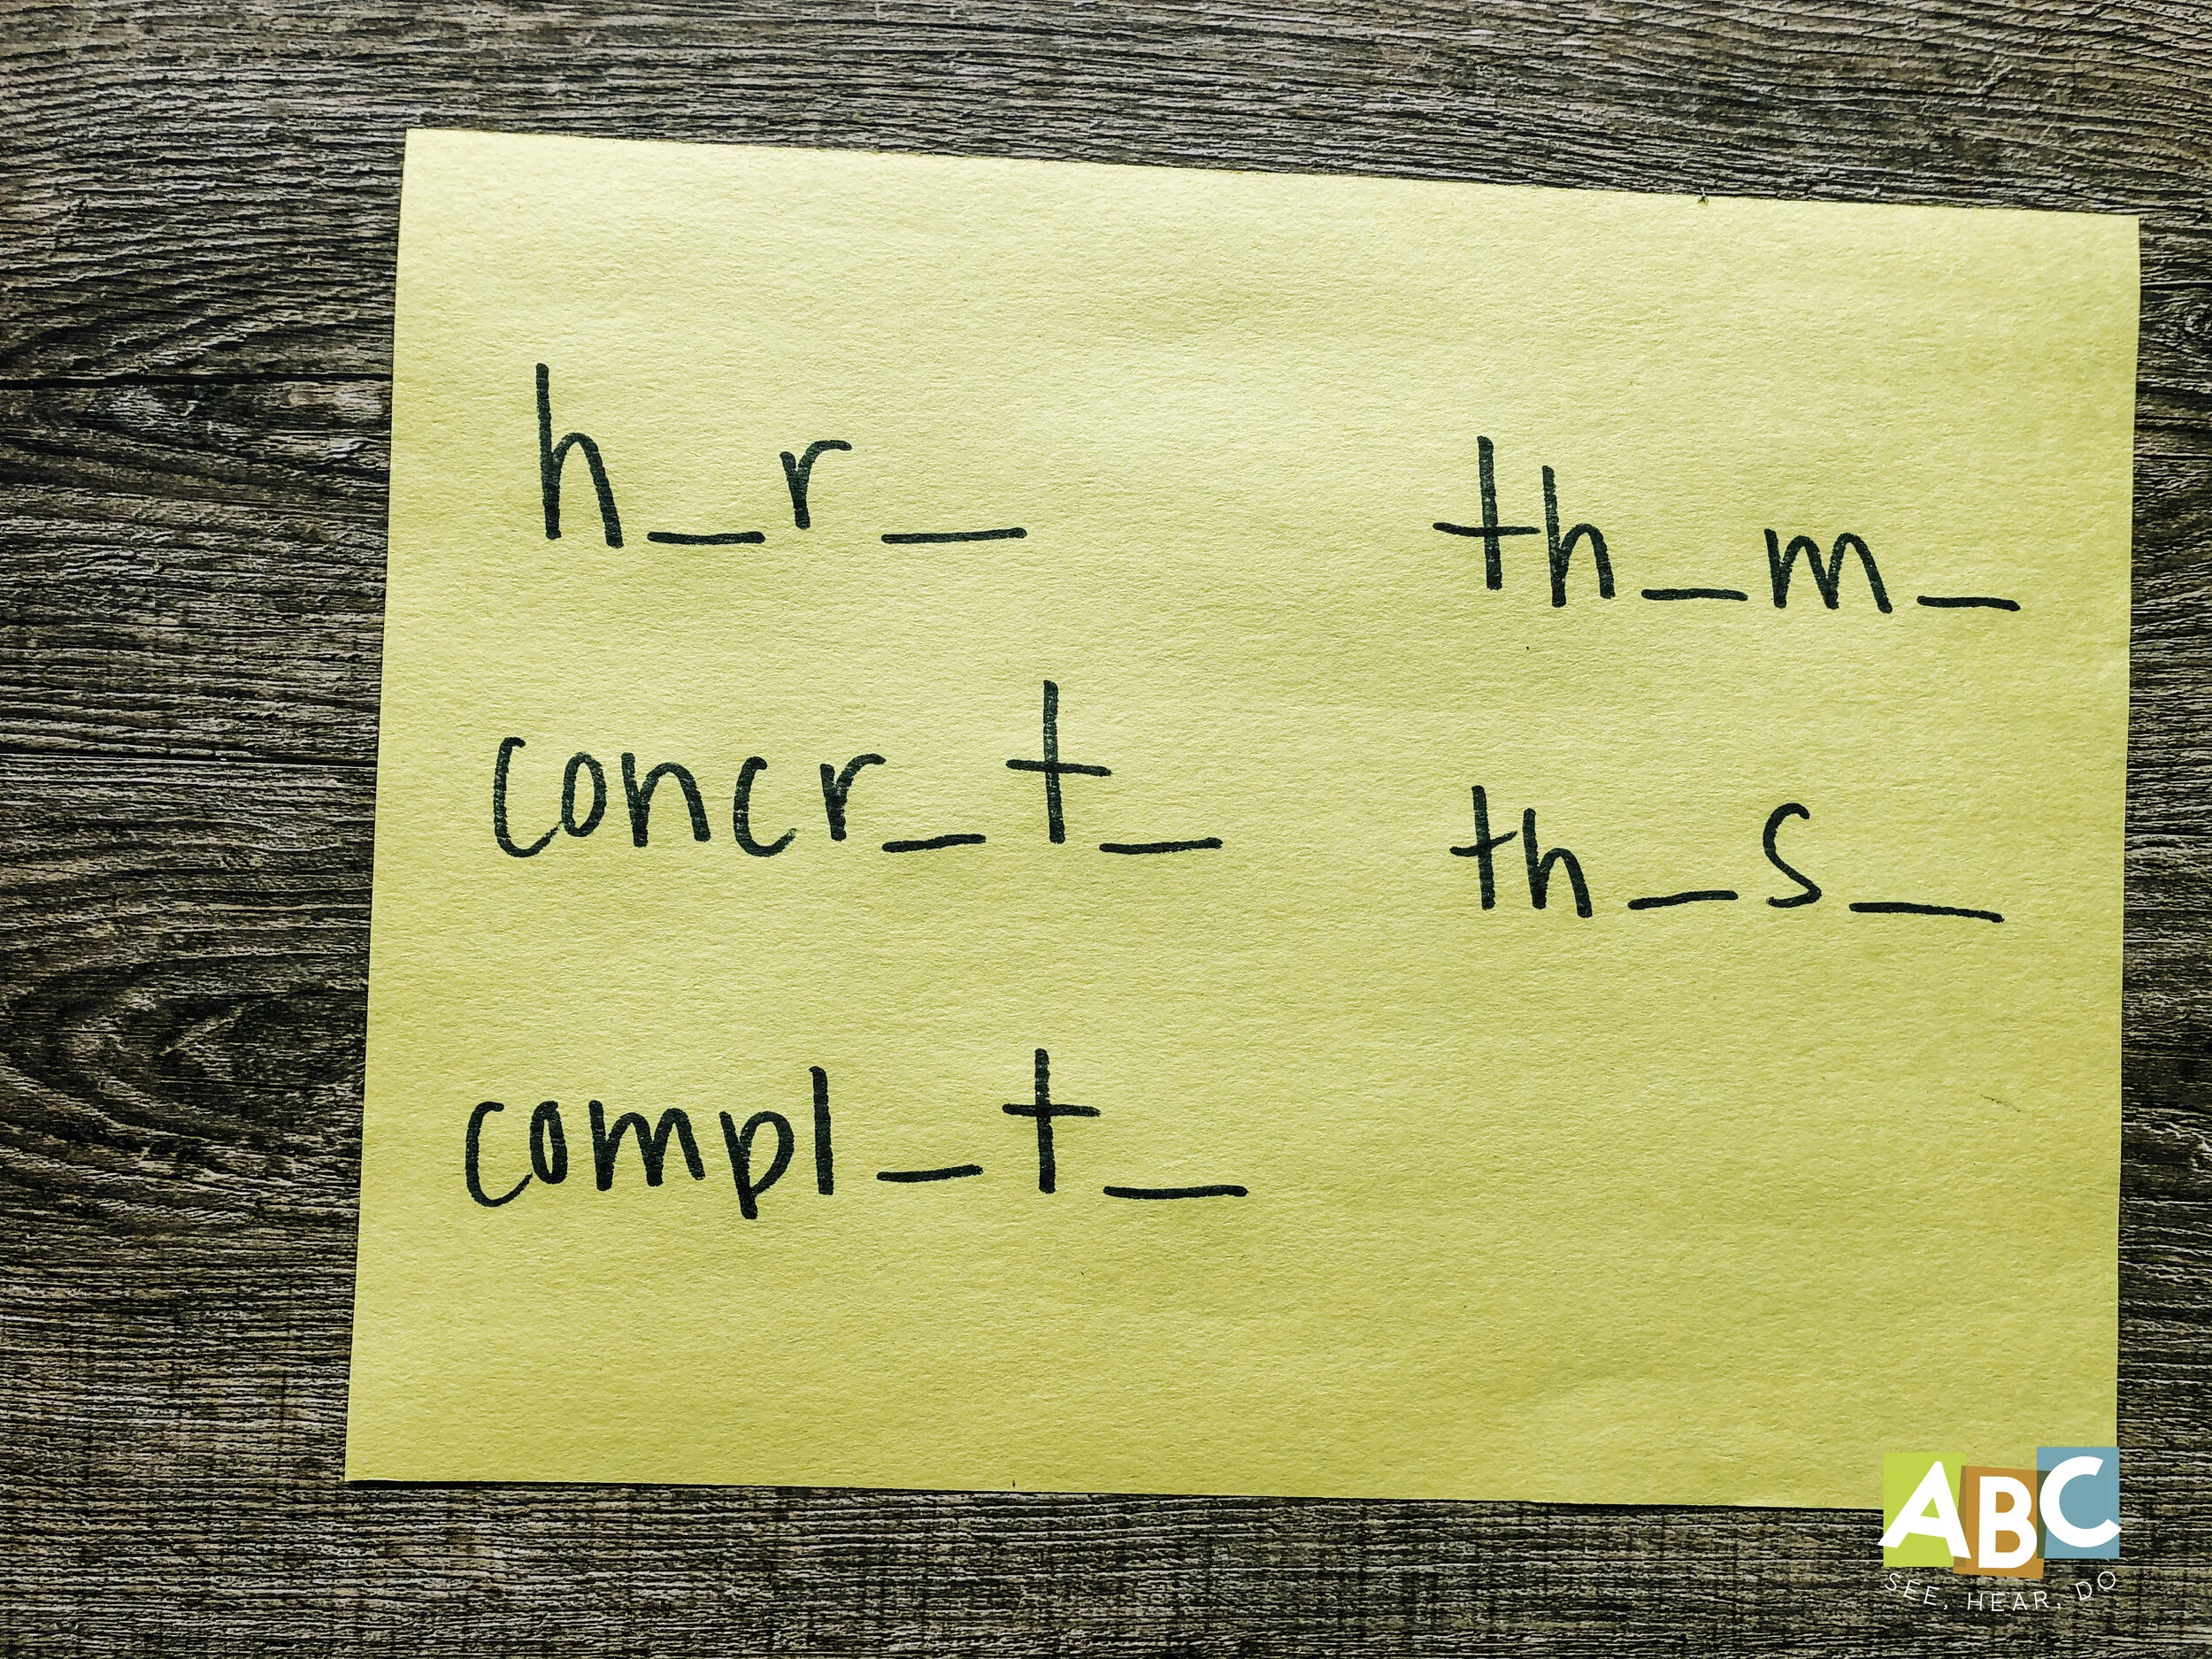 h_r_
concr_t_
compl_t_
th_m_
th_s_
ABC
SEE, HEAR, DO